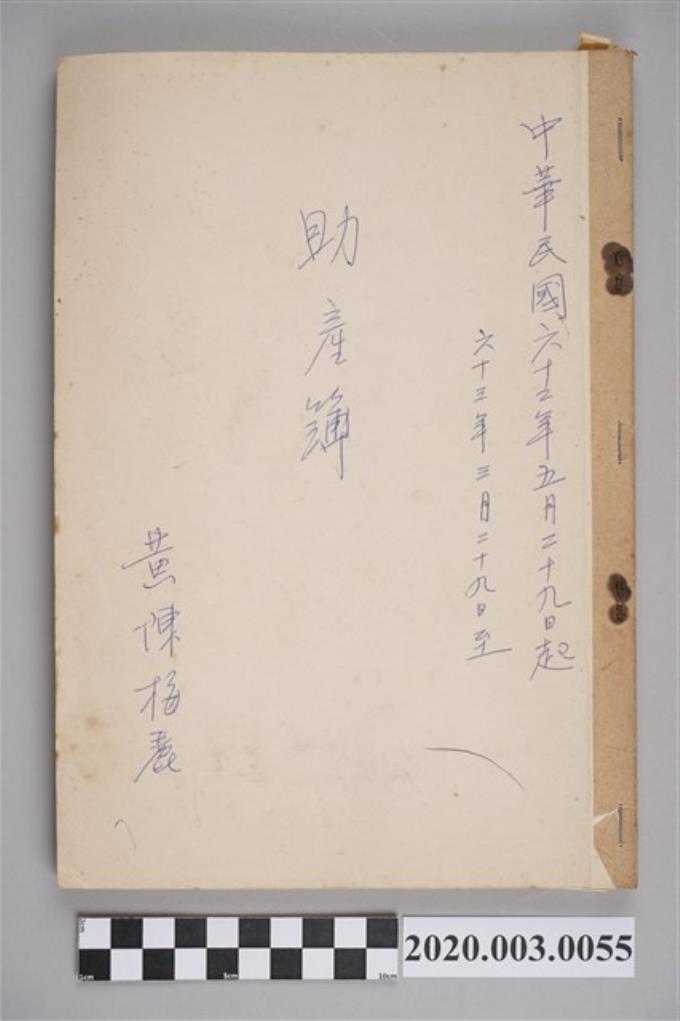 中華民國六十二年五月二十九日起
六十三年三月二十九日至
助產簿
黃陳梅麗
2020.003.0055
0cm
1cm
5cm
10cm